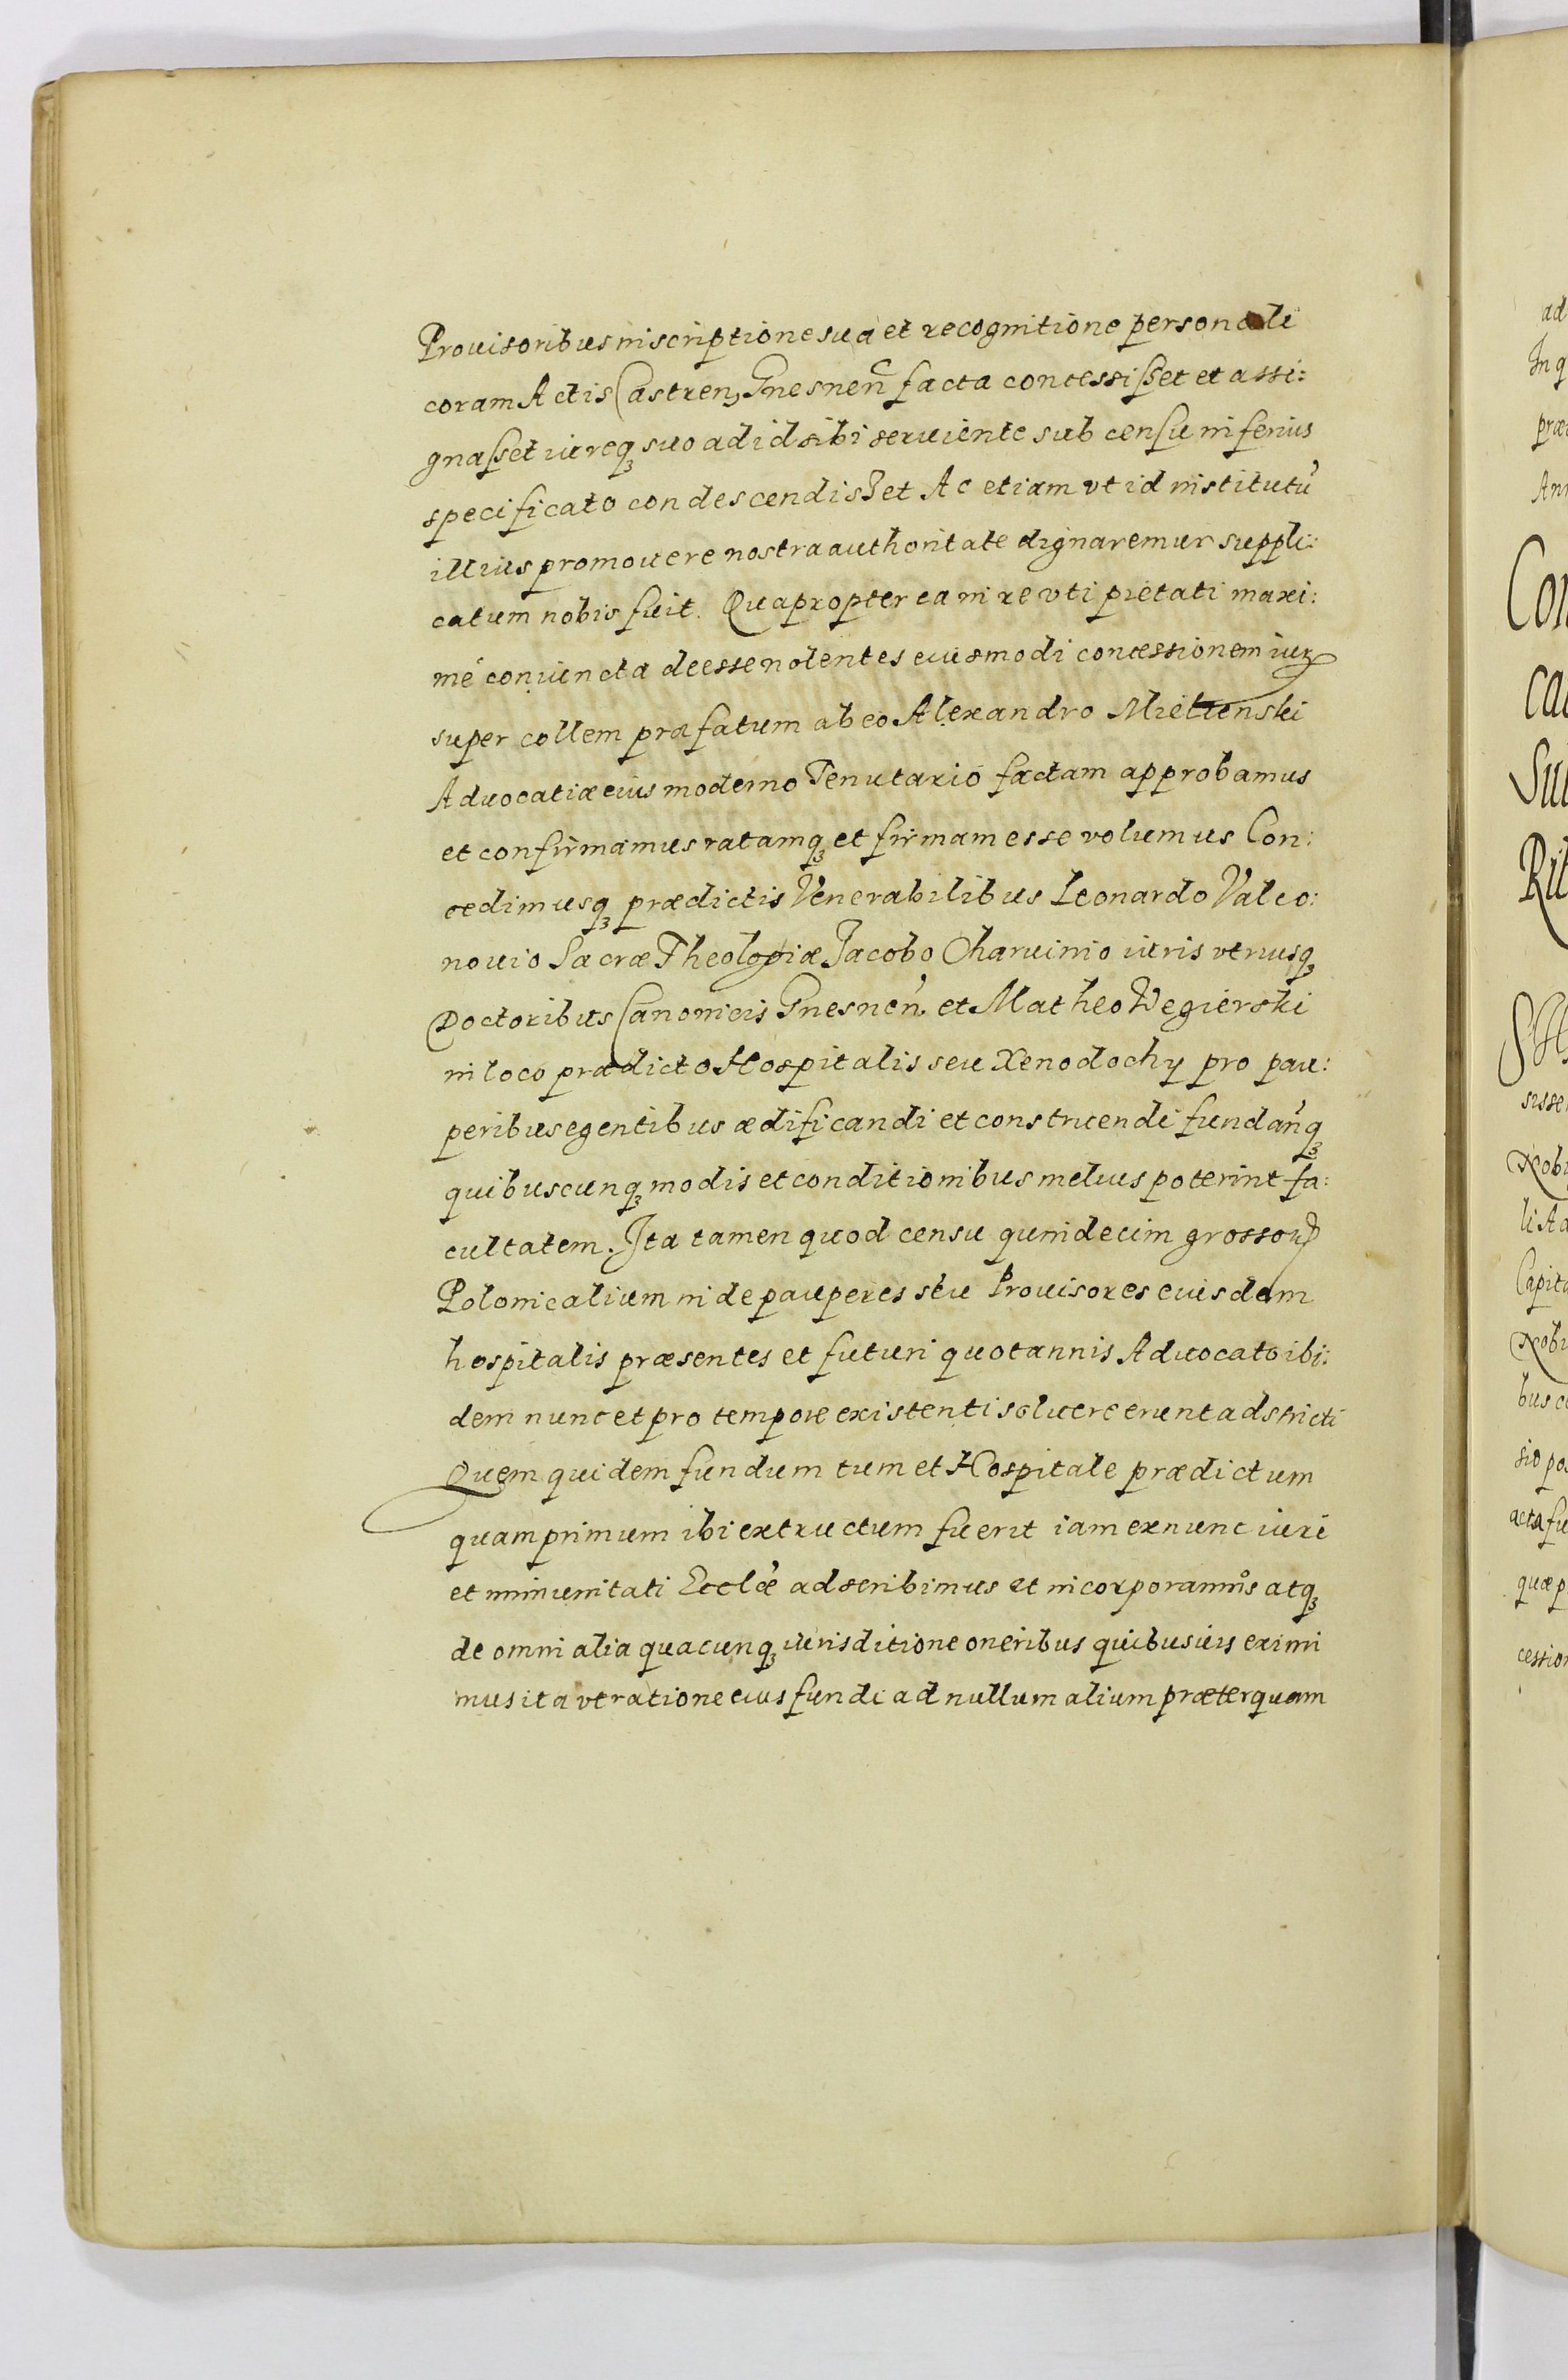 Prouisoribus inscriptione sua et recognitione personali
coram Actis Castren, Gnesnen̄ facta concessisset et assi:
gnasset iureqꝫ suo ad id sibi seruiente sub censu inferius
specificato condescendisset Ac etiam vt id institutū
illius promouere nostra authoritate dignaremur suppli:
catum nobis fuit. Quapropter ea in re vti pietati maxi:
mé coniuncta deesse nolentes eiusmodi concessionem iurꝫ
super collem præfatum ab eo Alexandro
Aduocatiæ eius moderno Tenutario factam approbamus
et confirmamus ratamqꝫ et firmam esse volumus Con:
cedimusqꝫ prædictis Venerabilibus Leonardo Valeo:
nouio Sacræ Theologiæ Jacobo Charuinio iuris vtriusqꝫ
Doctoribus Canonicis Gnesnen̄ et Matheo Wegierski
in loco prædicto Hospitalis seu Xenodochy pro pau:
peribus egentibus ædificandi et construendi fundan̄qꝫ
quibuscunqꝫ modis et conditionibus melius poterint fa:
cultatem. Ita tamen quod censu quindecim grossoꝝ
Polonicalium inde pauperes seu Prouisores eiusdem
hospitalis præsentes et futuri quotannis Aduocato ibi:
dem nunc et pro tempore existenti soluere erunt adstricti
Quem quidem fundum tum et Hospitale prædictum
quamprimum ibi extructum fuerit iam exnunc iuri
et immunitati Ecclǣ adscribimus et incorporamus atqꝫ
de omni alia quacunqꝫ iurisditione oneribus quibusuis eximi
mus ita vt ratione eius fundi ad nullum alium præterquam
ad
In q
præ
Ann
Con
Ca
Su
Rit
sisse
Nobi
li A
Capit
Nobi
bus c
sio po
acta fu
quæ p
cession